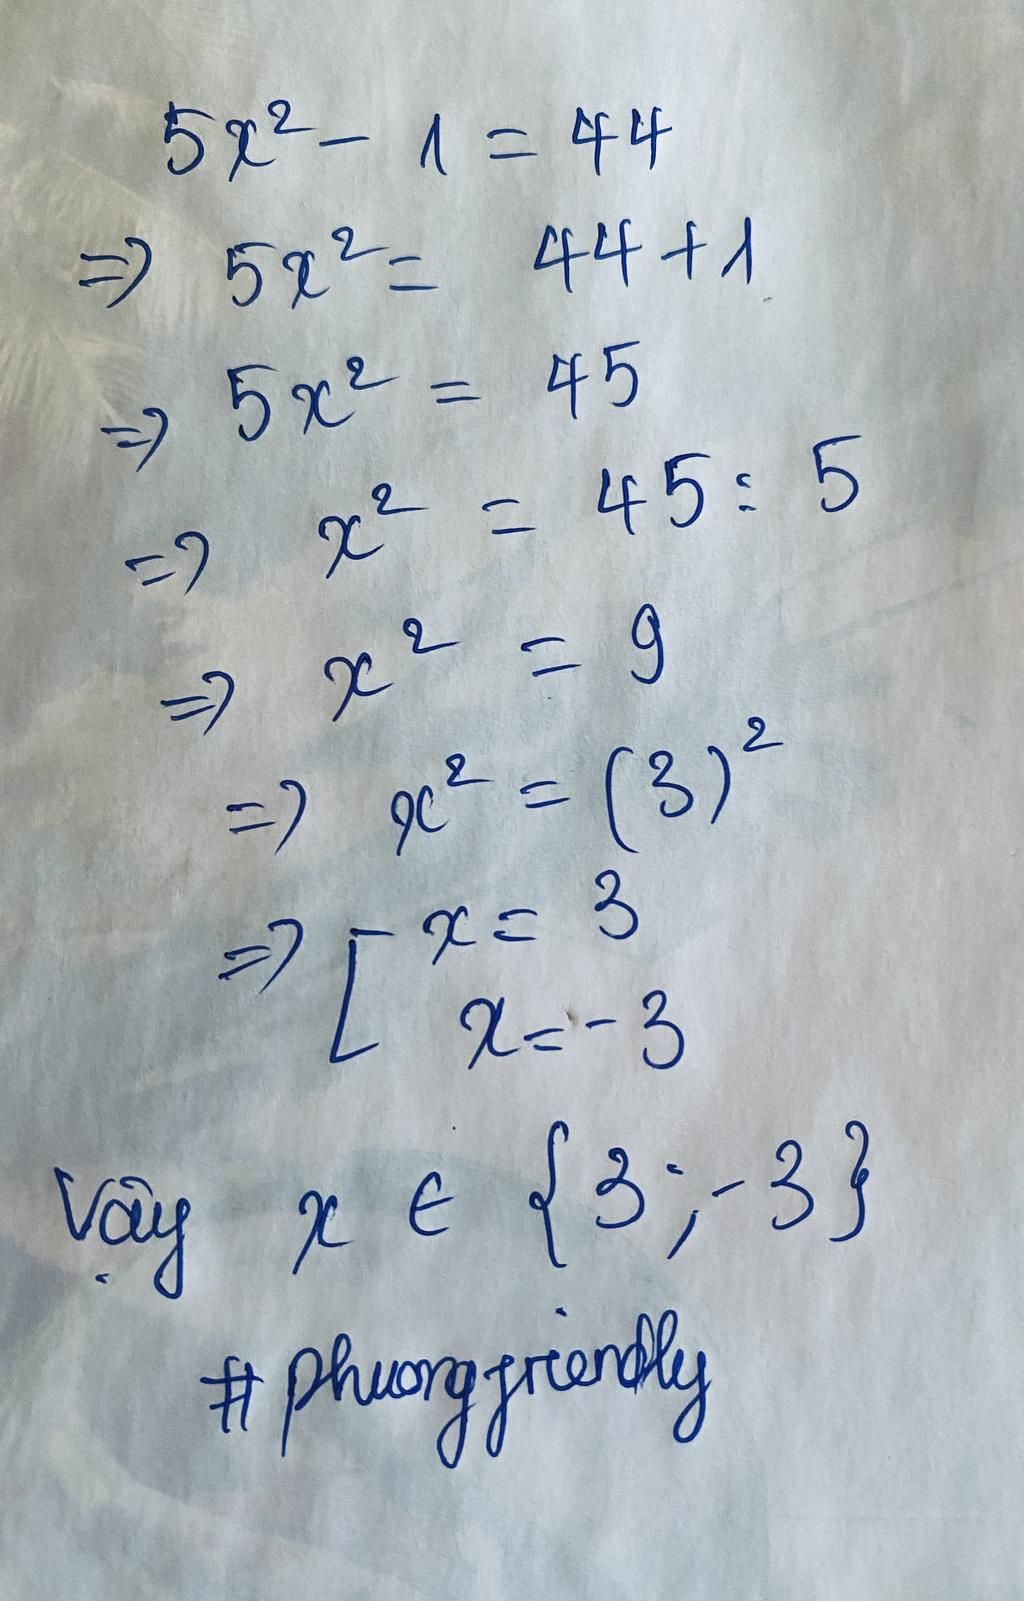 5x² - 1 = 44
=> 5x² = 44 + 1
=> 5x² = 45
=> x² = 45 : 5
=> x² = 9
=> x² = (3)²
=> [ x = 3
x = -3
Vậy x ∈ {3; -3}
# phuongfriendly